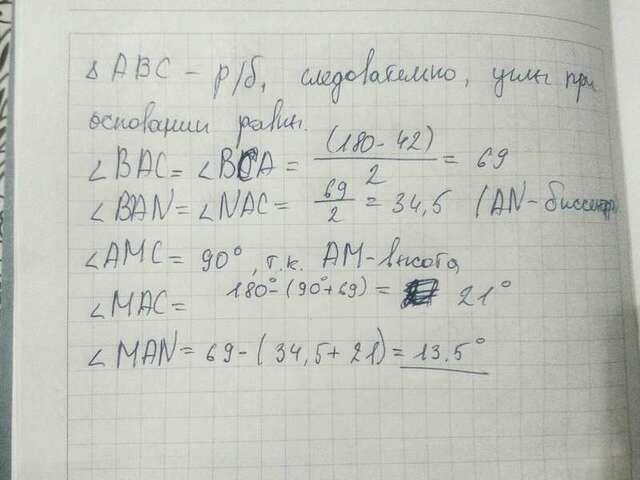 Δ ABC - р/б, следовательно, углы при
основании равны.
∠BAC = ∠BCA = (180 - 42)/2 = 69
∠BAN = ∠NAC = 69/2 = 34,5 (AN - биссектр
∠AMC = 90°, т.к. AM - высота
∠MAC = 180° - (90° + 69) = 21°
∠MAN = 69 - (34,5 + 21) = 13.5°